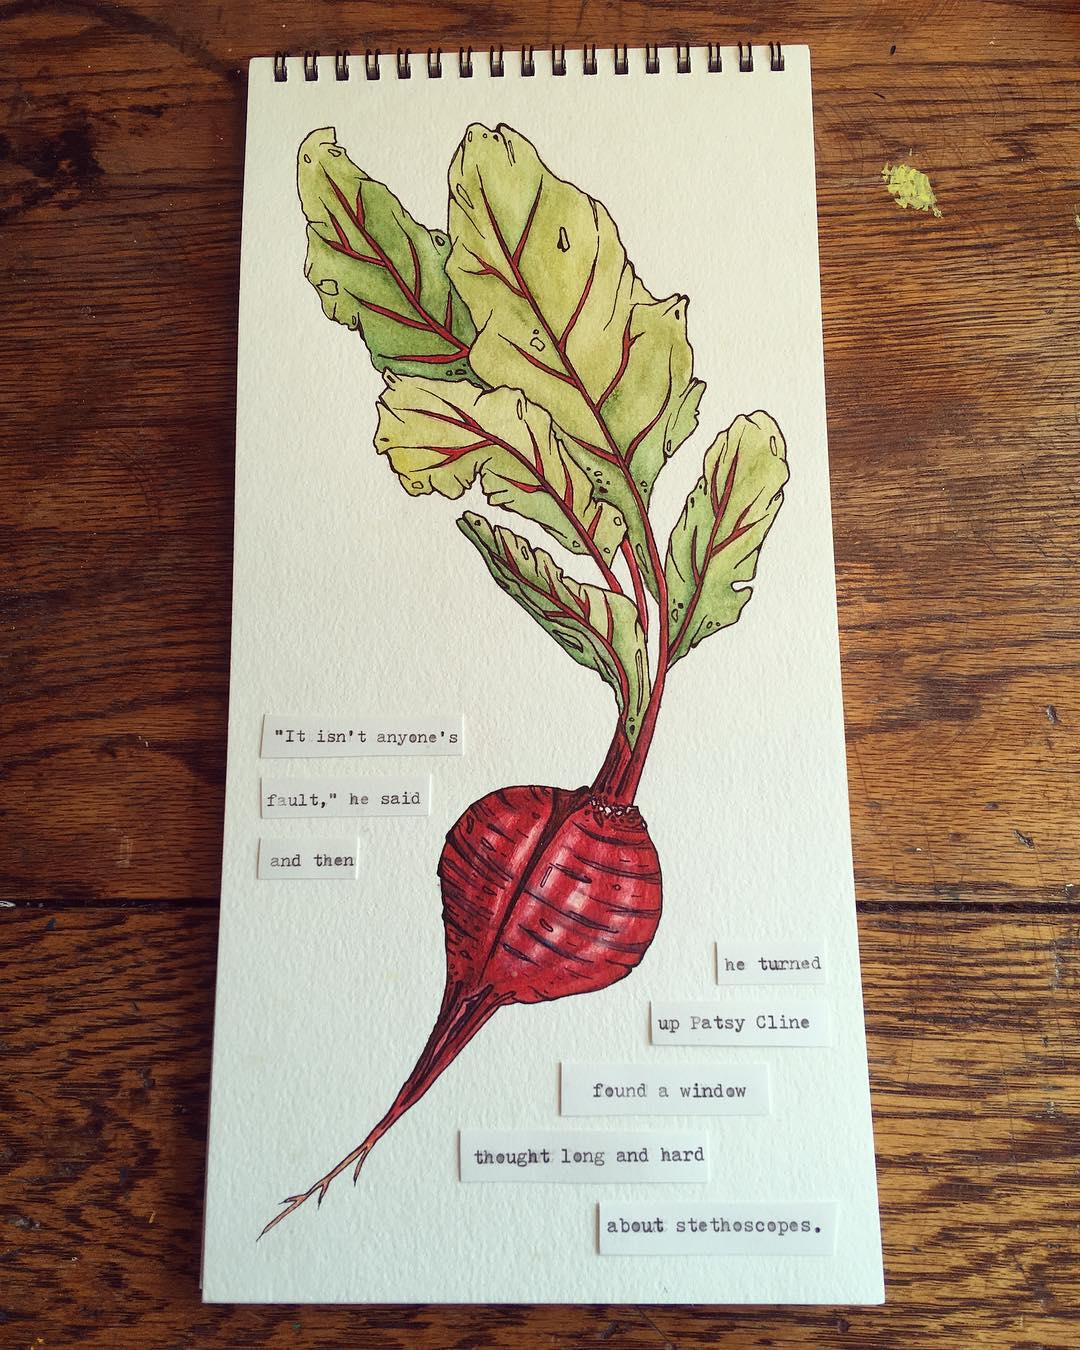 "It isn't anyone's
fault," he said
and then
he turned
up Patsy Cline
found a window
thought long and hard
about stethoscopes.